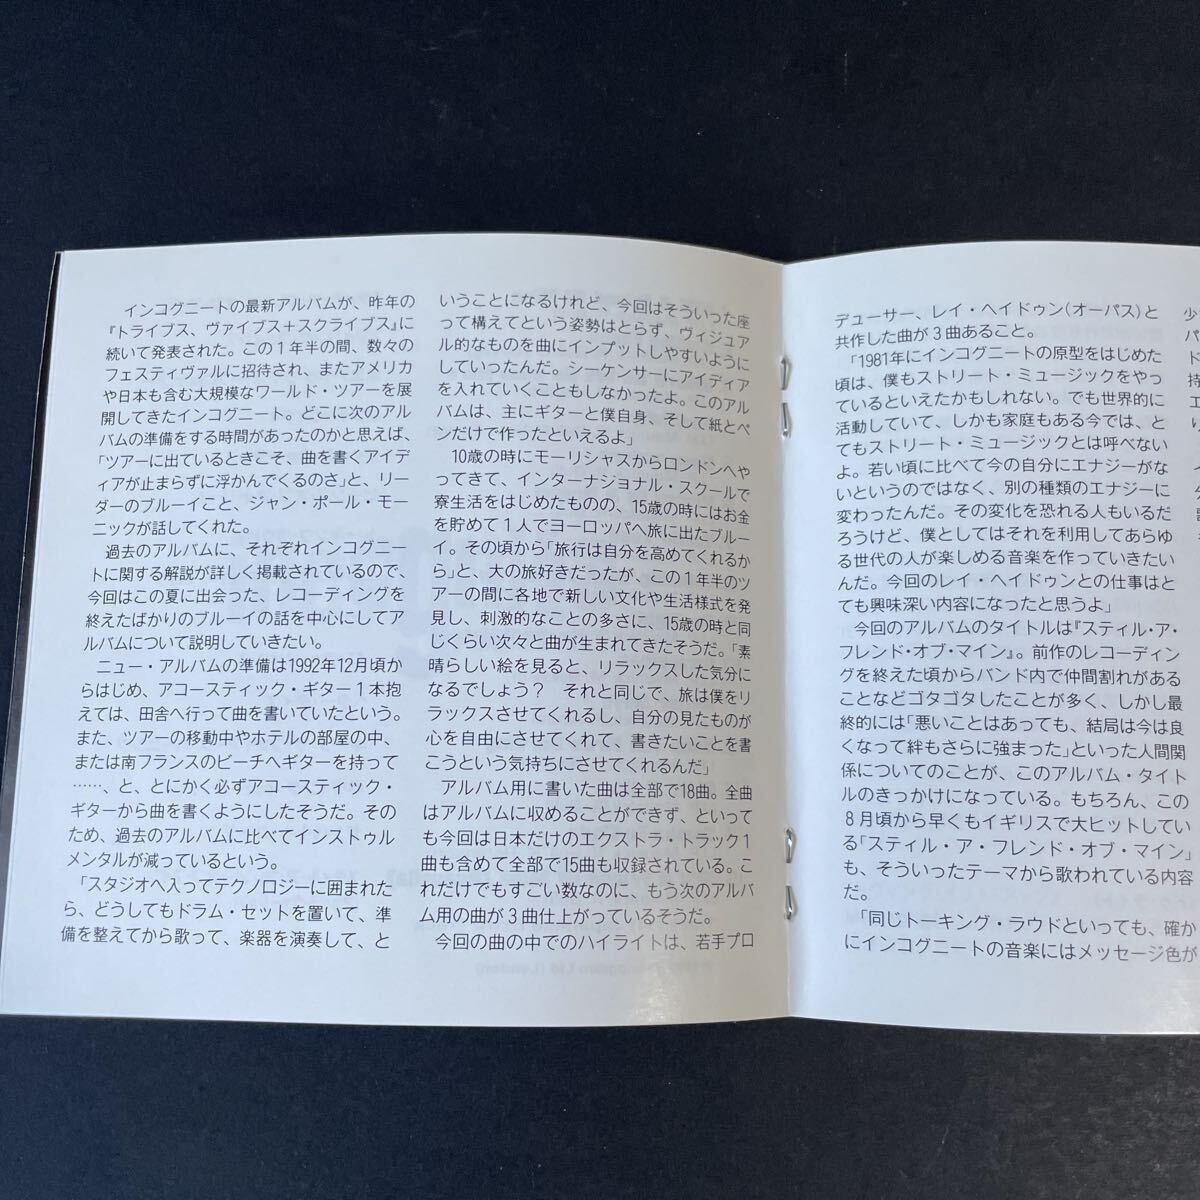 インコグニートの最新アルバムが、昨年の
『トライブス、ヴァイブス＋スクライブス』に
続いて発表された。この１年半の間、数々の
フェスティヴァルに招待され、またアメリカ
や日本も含む大規模なワールド・ツアーを展
開してきたインコグニート。どこに次のアル
バムの準備をする時間があったのかと思えば、
「ツアーに出ているときこそ、曲を書くアイデ
ィアが止まらずに浮かんでくるのさ」と、リー
ダーのブルーイこと、ジャン・ポール・モー
ニックが話してくれた。
過去のアルバムに、それぞれインコグニー
トに関する解説が詳しく掲載されているので、
今回はこの夏に出会った、レコーディングを
終えたばかりのブルーイの話を中心にしてア
ルバムについて説明していきたい。
ニュー・アルバムの準備は1992年12月頃か
らはじめ、アコースティック・ギター１本抱
えては、田舎へ行って曲を書いていたという。
また、ツアーの移動中やホテルの部屋の中、
または南フランスのビーチへギターを持って
……、と、とにかく必ずアコースティック・
ギターから曲を書くようにしたそうだ。その
ため、過去のアルバムに比べてインストゥル
メンタルが減っているという。
「スタジオへ入ってテクノロジーに囲まれた
ら、どうしてもドラム・セットを置いて、準
備を整えてから歌って、楽器を演奏して、と
いうことになるけれど、今回はそういった座
って構えてという姿勢はとらず、ヴィジュア
ル的なものを曲にインプットしやすいように
していったんだ。シーケンサーにアイディア
を入れていくこともしなかったよ。このアル
バムは、主にギターと僕自身、そして紙とペ
ンだけで作ったといえるよ」
10歳の時にモーリシャスからロンドンへや
ってきて、インターナジョナル・スクールで
寮生活をはじめたものの、15歳の時にはお金
を貯めて１人でヨーロッパへ旅に出たブルー
イ。その頃から「旅行は自分を高めてくれるか
ら」と、大の旅好きだったが、この１年半のツ
アーの間に各地で新しい文化や生活様式を発
見し、刺激的なことの多さに、15歳の時と同
じくらい次々と曲が生まれてきたそうだ。「素
晴らしい絵を見ると、リラックスした気分に
なるでしょう？　それと同じで、旅は僕をリ
ラックスさせてくれるし、自分の見たものが
心を自由にさせてくれて、書きたいことを書
こうという気持ちにさせてくれるんだ」
アルバム用に書いた曲は全部で18曲。全曲
はアルバムに収めることができず、といって
も今回は日本だけのエクストラ・トラック１
曲も含めて全部で15曲も収録されている。こ
れだけでもすごい数なのに、もう次のアルバ
ム用の曲が３曲仕上がっているそうだ。
今回の曲の中でのハイライトは、若手プロ
デューサー、レイ・ヘイドゥン（オーパス）と
共作した曲が３曲あること。
「1981年にインコグニートの原型をはじめた
頃は、僕もストリート・ミュージックをやっ
ているといえたかもしれない。でも世界的に
活動していて、しかも家庭もある今では、と
てもストリート・ミュージックとは呼べない
よ。若い頃に比べて今の自分にエナジーがな
いというのではなく、別の種類のエナジーに
変わったんだ。その変化を恐れる人もいるだ
ろうけど、僕としてはそれを利用してあらゆ
る世代の人が楽しめる音楽を作っていきたい
んだ。今回のレイ・ヘイドゥンとの仕事はと
ても興味深い内容になったと思うよ」
今回のアルバムのタイトルは『スティル・ア・
フレンド・オブ・マイン』。前作のレコーディン
グを終えた頃からバンド内で仲間割れがある
ことなどゴタゴタしたことが多く、しかし最
終的には「悪いことはあっても、結局は今は良
くなって絆もさらに強まった」といった人間関
係についてのことが、このアルバム・タイト
ルのきっかけになっている。もちろん、この
８月頃から早くもイギリスで大ヒットしてい
る「スティル・ア・フレンド・オブ・マイン」
も、そういったテーマから歌われている内容
だ。
「同じトーキング・ラウドといっても、確か
にインコグニートの音楽にはメッセージ色が
少
バ
ド
持
エ
り